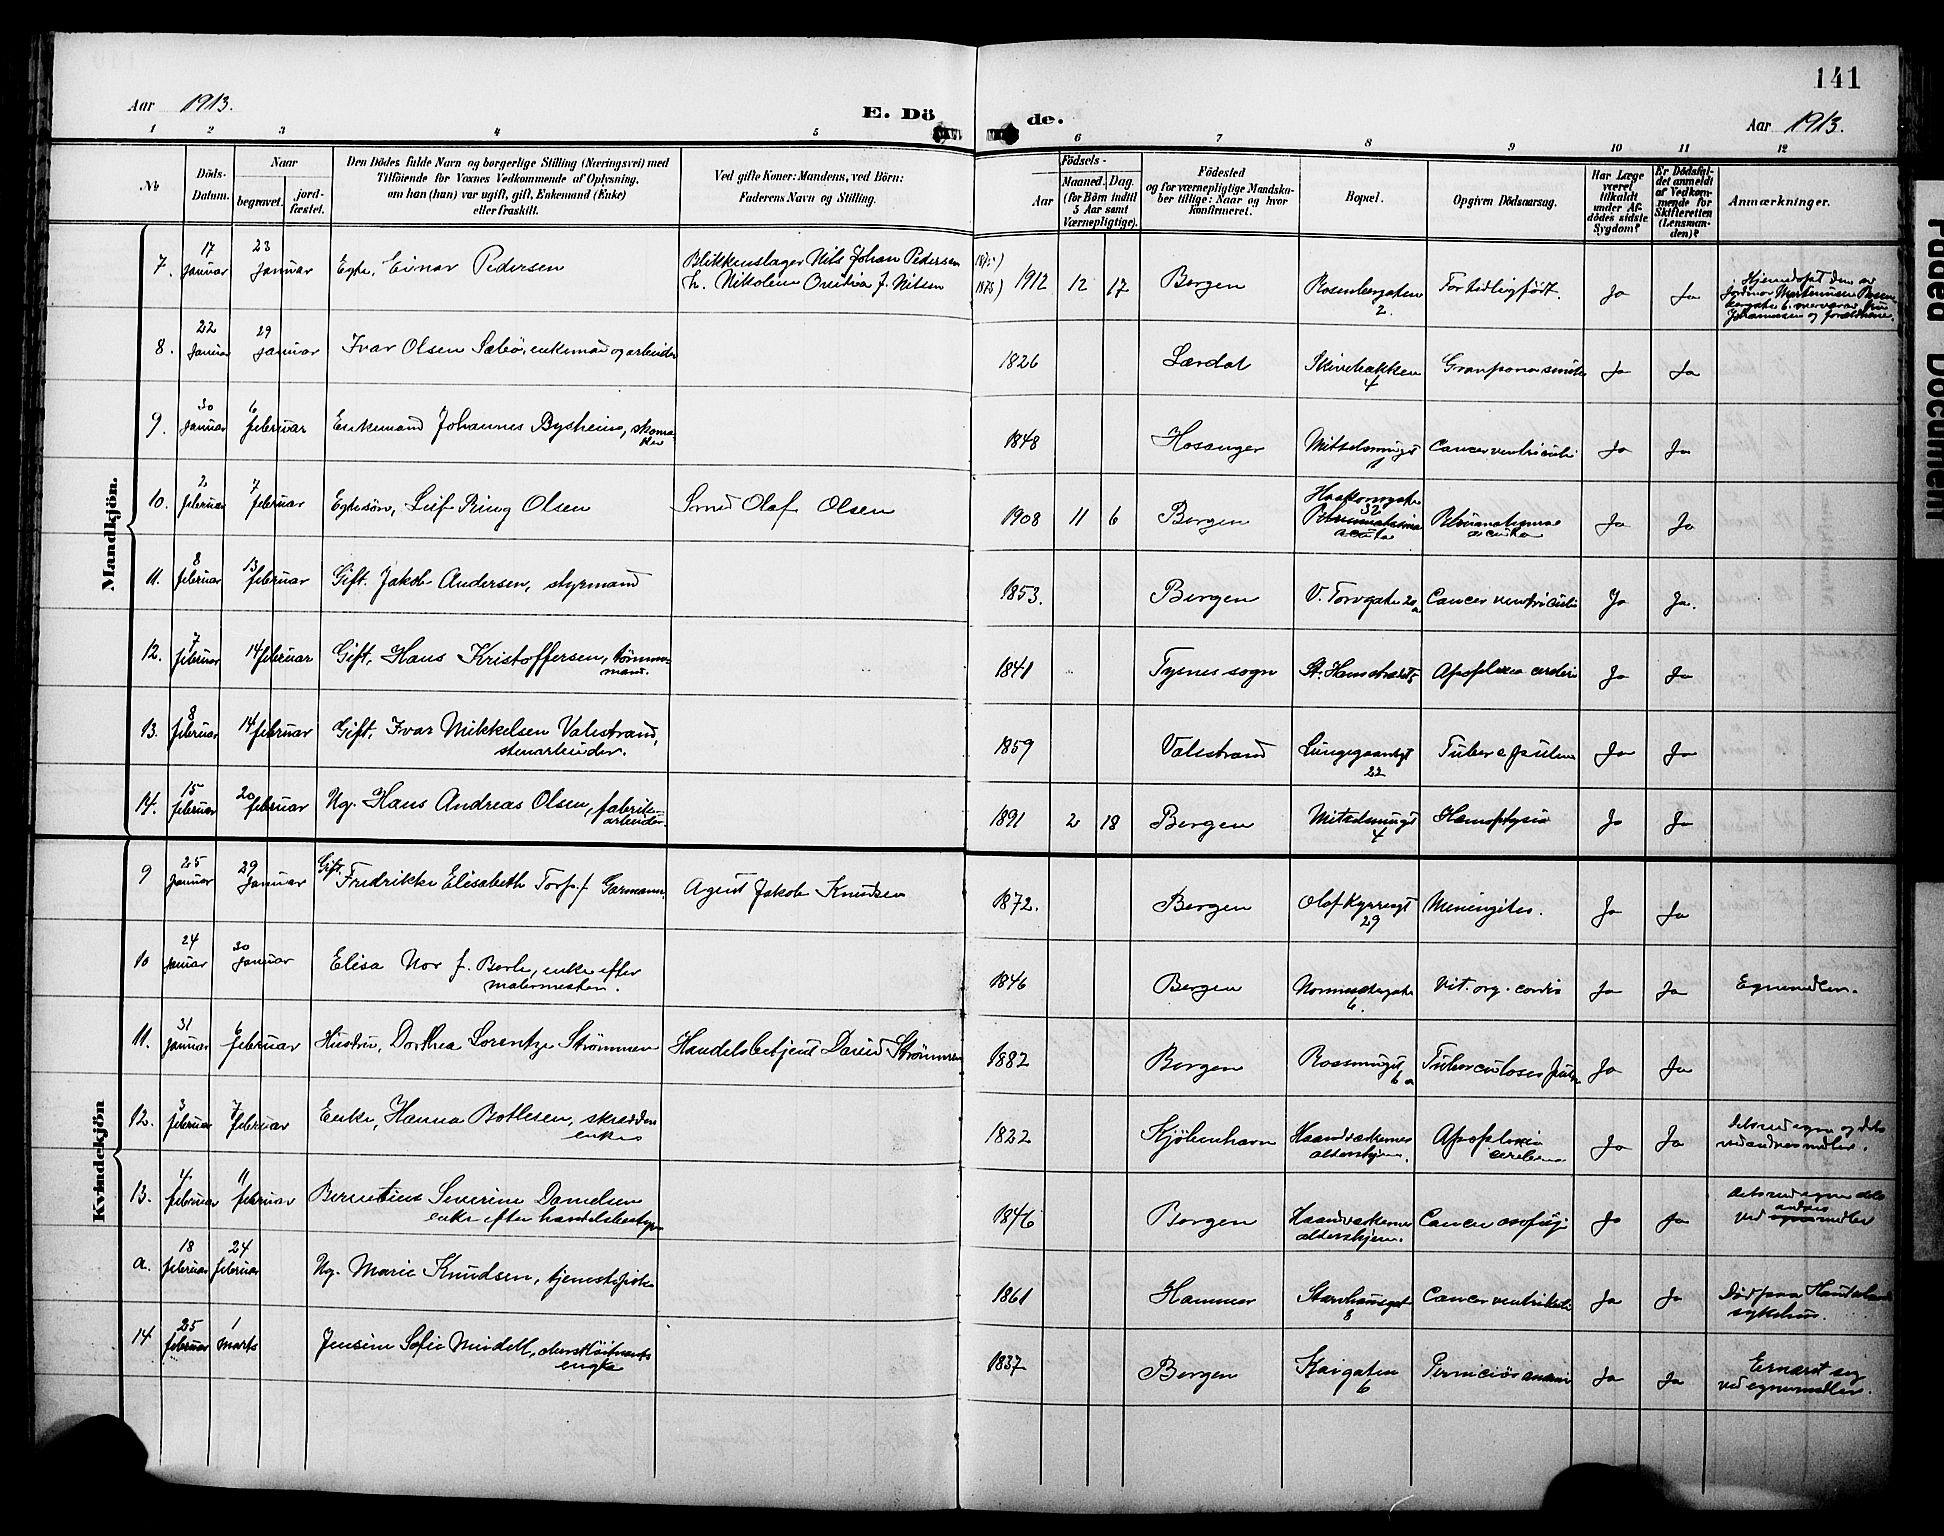 141
Aar 1913.
E. Dö
de.
Aar 1913.
1 2 3 4 5 6 7 8 9 10 11 12
No
Döds-
Datum.
Naar
begravet.
jord-
fæstet.
Den Dödes fulde Navn og borgerlige Stilling (Næringsvei) med
Tilföiende for Voxnes Vedkommende af Oplysning,
om han (hun) var ugift, gift, Enkemand (Enke)
eller fraskilt.
Ved gifte Koner: Mandens, ved Börn:
Faderens Navn og Stilling.
Födsels-
Aar
Maaned.
Dag.
(for Börn indtil
5 Aar samt
Værnepligtige).
Födested
og for værnepligtige Mandska-
ber tillige: Naar og hvor
konfirmeret.
Bopæl.
Opgiven Dödsaarsag.
Har Læge
været
tilkaldt
under Af-
dödes sidste
Sygdom?
Er Dödsfal-
det anmeldt
af Vedkom-
mende for
Skifteretten
(Lensman-
den)?
Anmærkninger.
Mandkjön.
7. 17 januar 23 januar Egte, Einar Pedersen Blikkenslager Nils Johan Pedersen
1912 12 17 Bergen Rosenbergaten 2. For tidlig født. Ja Ja
8. 22 januar 29 januar Ivar Olsen Sæbø, enkemand og arbeider
1826 Lærdal 4 Ja Ja
9. 30 januar 6 februar Enkemand Johannes Bysheim, skomaker
1848 Hosanger Cancer ventriculi Ja Ja
10. 2 februar 7 februar Egtesøn, Leif Ring Olsen Smed Olaf Olsen
1908 11 6 Bergen Haakonsgate 32 Rheumatismus acuta Ja Ja
11. 8 februar 13 februar Gift. Jakob Andersen, styrmand
1853. Bergen V. Torvgate 20a Cancer ventriculi Ja Ja.
12. 7 februar 14 februar Gift, Hans Kristoffersen, tømmermand.
1841 Tysnes sogn Apoplexia cerebri Ja Ja
13. 8 februar 14 februar Gift, Ivar Mikkelsen Valestrand,
stenarbeider.
1859 Valestrand Lungegaardsgt 22 Ja Ja
14. 15 februar 20 februar Ug. Hans Andreas Olsen, fabrik-
arbeider.
1891 2 18 Bergen 4 Hæmoptysis Ja Ja
Kvindekjön
9 25 januar 29 januar Gift. Fredrikke Elisabeth f. Garmann, Agent Jakob Knudsen
1872. Bergen Olaf Kyrresgt 29 Meningites. Ja Ja
10 24 januar 30 januar Elisa f. enke efter
malermester.
1846 Bergen 6. Vit. org. cordis Ja Ja Egnemidler.
11. 31 januar 6 februar Hustru, Dorthea Lorentze Strømmen Handelsbetjent David Strømmen
1882 Bergen 6a Tuberculosis Ja Ja
12. 3 februar 7 februar Enke, Hanna Botlesen, skrædder
enke
1822 Kjøbenhavn Haandværkernes
aldershjem. Apoplexia
cerebri Ja Ja Dels ved egne og dels
ved andres midler.
13. 4. februar 11 februar Berentine Severine Danielsen
enke efter handelsbestyrer
1846 Bergen Haandværkernes
aldershjem. Cancer Ja Ja Dels ved egne dels
ved andres midler
a. 18 februar 24 februar Ug. Marie Knudsen, tjenestepike
1861 Hammer 8 Cancer ventriculi Ja Ja Død paa Haukeland
sykehus.
14 25 februar 1 marts Jensine Sofie
enke
1837 Bergen 6 Perniciøs anæmi Ja Ja Ernæret sig
ved egnemidler.
Faded Document